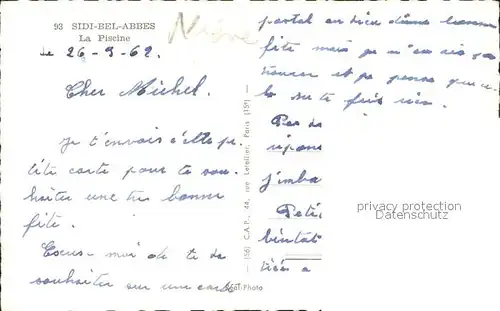 93 SIDI-BEL-ABBES
La Piscine
Le 26-9-62.
Cher Michel.
Je t'envois cette pe-
tite carte pour te sou-
haiter une tres bonne
fête.
Excuse-moi de te
souhaiter sur une carte
postal au lieu d'une bonne
fête mais je n'en ai pas
trouver et je pense que
te fais rien.
Pas de
répons
j'mba
Peti
bientot
(56) C.A.P., 44, rue Letellier, Paris (15e)
Photo
privacy protection
Datenschutz